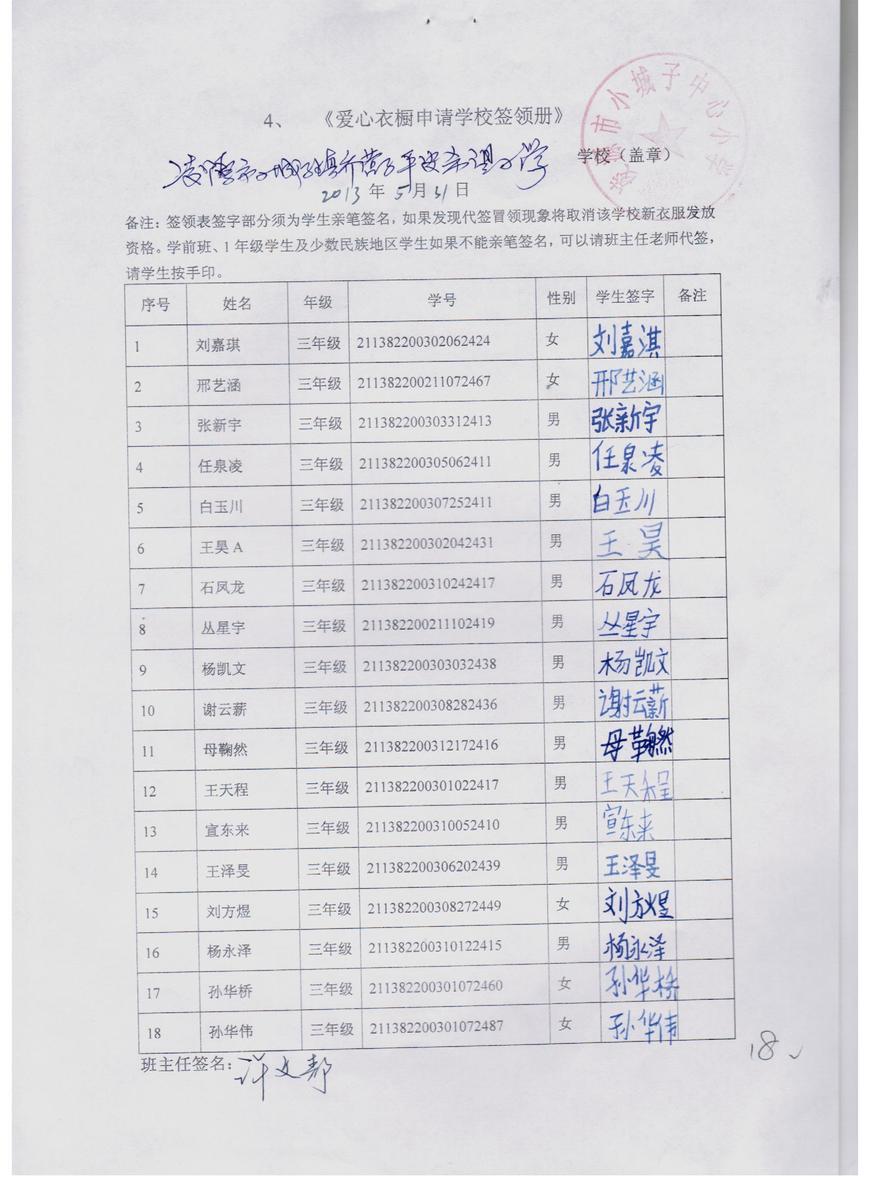 4、 《爱心衣橱申请学校签领册》
凌源市小城子镇乔营子平安希望小学 学校（盖章）
凌源市小城子中心小学
2013年5月31日
备注：签领表签字部分须为学生亲笔签名，如果发现代签冒领现象将取消该学校新衣服发放
资格。学前班、1年级学生及少数民族地区学生如果不能亲笔签名，可以请班主任老师代签，
请学生按手印。
序号 姓名 年级 学号 性别 学生签字 备注
1 刘嘉琪 三年级 211382200302062424 女 刘嘉淇
2 邢艺涵 三年级 211382200211072467 女 邢艺涵
3 张新宇 三年级 211382200303312413 男 张新宇
4 任泉凌 三年级 211382200305062411 男 任泉凌
5 白玉川 三年级 211382200307252411 男 白玉川
6 王昊A 三年级 211382200302042431 男 王昊
7 石凤龙 三年级 211382200310242417 男 石凤龙
8 丛星宇 三年级 211382200211102419 男 丛星宇
9 杨凯文 三年级 211382200303032438 男 杨凯文
10 谢云薪 三年级 211382200308282436 男 谢云薪
11 母鞠然 三年级 211382200312172416 男 母鞠然
12 王天程 三年级 211382200301022417 男 王天程
13 宣东来 三年级 211382200310052410 男 宣东来
14 王泽旻 三年级 211382200306202439 男 王泽旻
15 刘方煜 三年级 211382200308272449 女 刘方煜
16 杨永泽 三年级 211382200310122415 男 杨永泽
17 孙华桥 三年级 211382200301072460 女 孙华桥
18 孙华伟 三年级 211382200301072487 女 孙华伟
班主任签名：
18